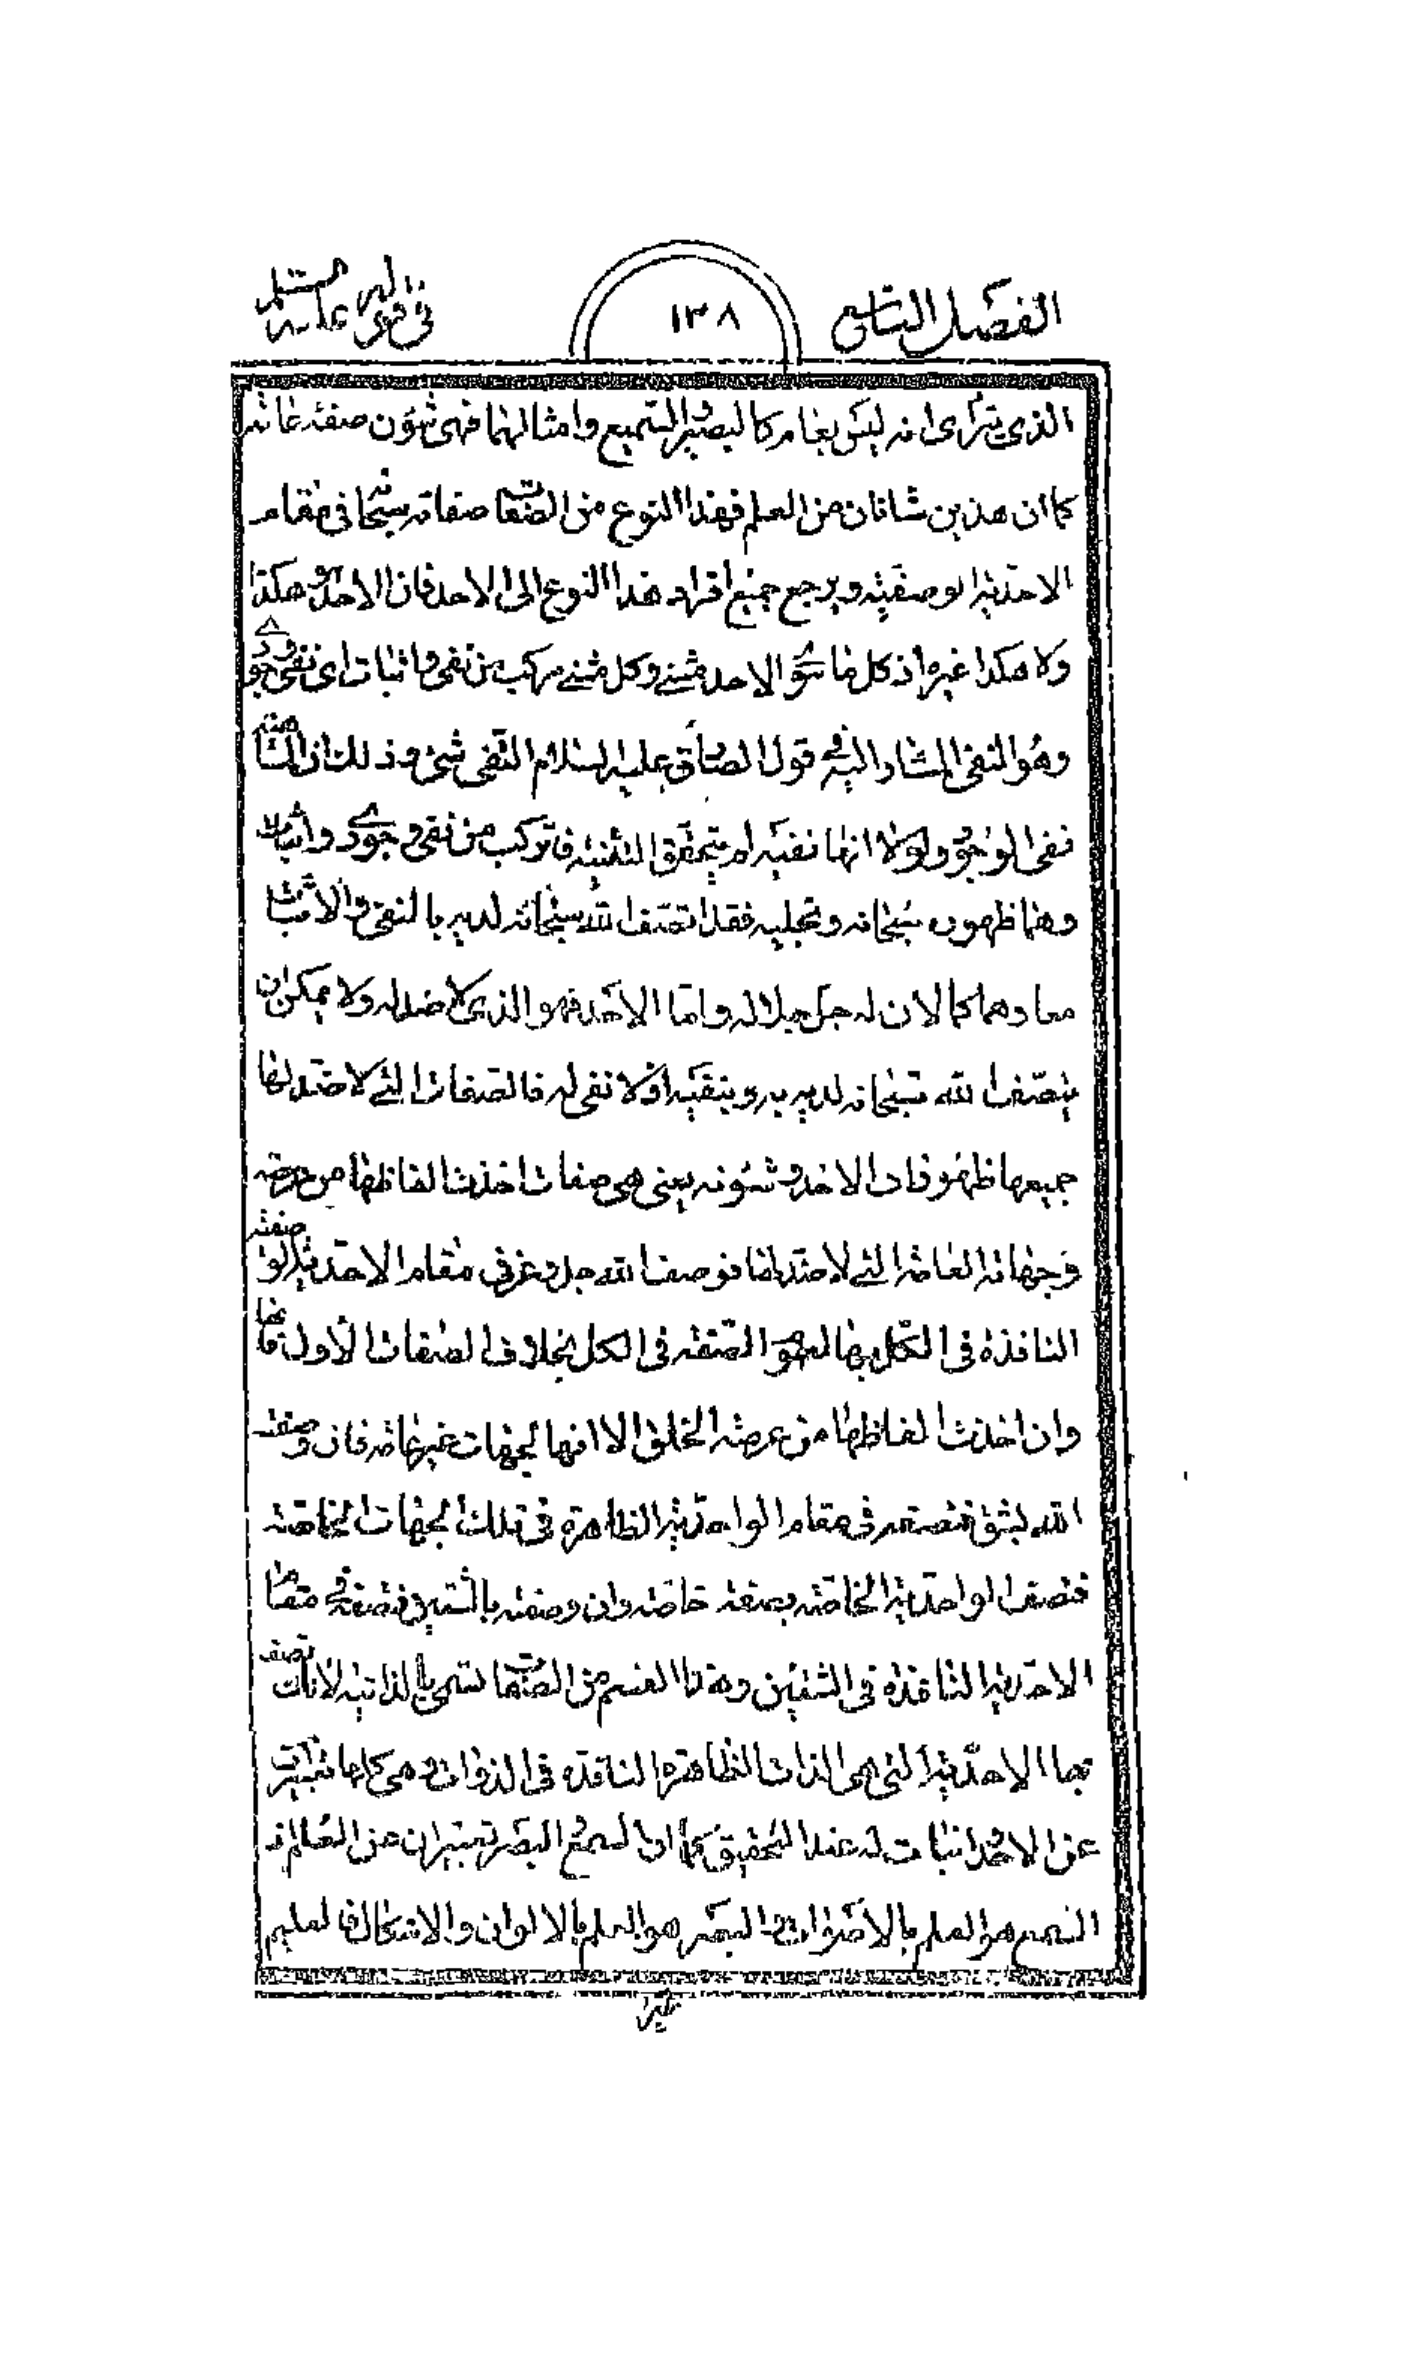 الفصل التاسع
١٣٨
فى قوله عليه السلام
الذى يترآى انه ليس بعام كالبصير والسميع وامثالهما فهى شؤن صفة عامة
كما ان هذين شانان من العلم فهذا النوع من الصفات صفاته سبحانه فى مقام
الاحدية الوصفية ويرجع جميع افراد هذا النوع الى الاحد فان الاحد هو هكذا
ولا هكذا غيره اذ كل ما سوى الاحد مثنى وكل مثنى مركب من نفى واثبات اى نفى وجود
وهو النفى المشار اليه فى قول الصادق عليه السلام النفى شئ وذلك ان
نفى الوجود ولولا انها نفيه لم يتحقق التثنية فاتركب من نفى وجودى واثبات
وهما ظهوره سبحانه وتجليه فقد اتصف الله سبحانه لديه بالنفى والاثبات
معا وهما كمالان له جل جلاله واما الاحد فهو الذى لا ضد له ولا يمكن ان
يتصف الله سبحانه لديه به وبنفيه اذ لا نفى له فالصفات التى لا ضد لها
جميعها ظهورات الاحد وشئونه يعنى هى صفات اخذت الفاظها من عرصة
وجهاته العامة التى لا ضد لها فوصف الله جل وعز فى مقام الاحدية الوصفية
النافذة فى الكل بها لعموم الصفة فى الكل بخلاف الصفات الاول فانها
وان اخذت الفاظها من عرصة الخلق الا انها لجهات غير عامة فان وصفته
الله بشئ فتصفه فى مقام الواحدية الظاهرة فى تلك الجهات الخاصة
فتصف الواحدية الخاصة بصفة خاصة وان وصفته بالشيئين فتصفه فى مقام
الاحدية النافذة فى الشيئين وهذا القسم من الصفات تسمى بالذاتية لانك تصف
بها الاحدية التى هى الذات الظاهرة النافذة فى الذوات وهى كلها تعبيرات
عن الاحد اثبات له عند التحقيق كما ان السمع والبصر تعبيران عن العلم اذ
السمع هو العلم بالاصوات والبصر هو العلم بالالوان والاشكال فالعليم